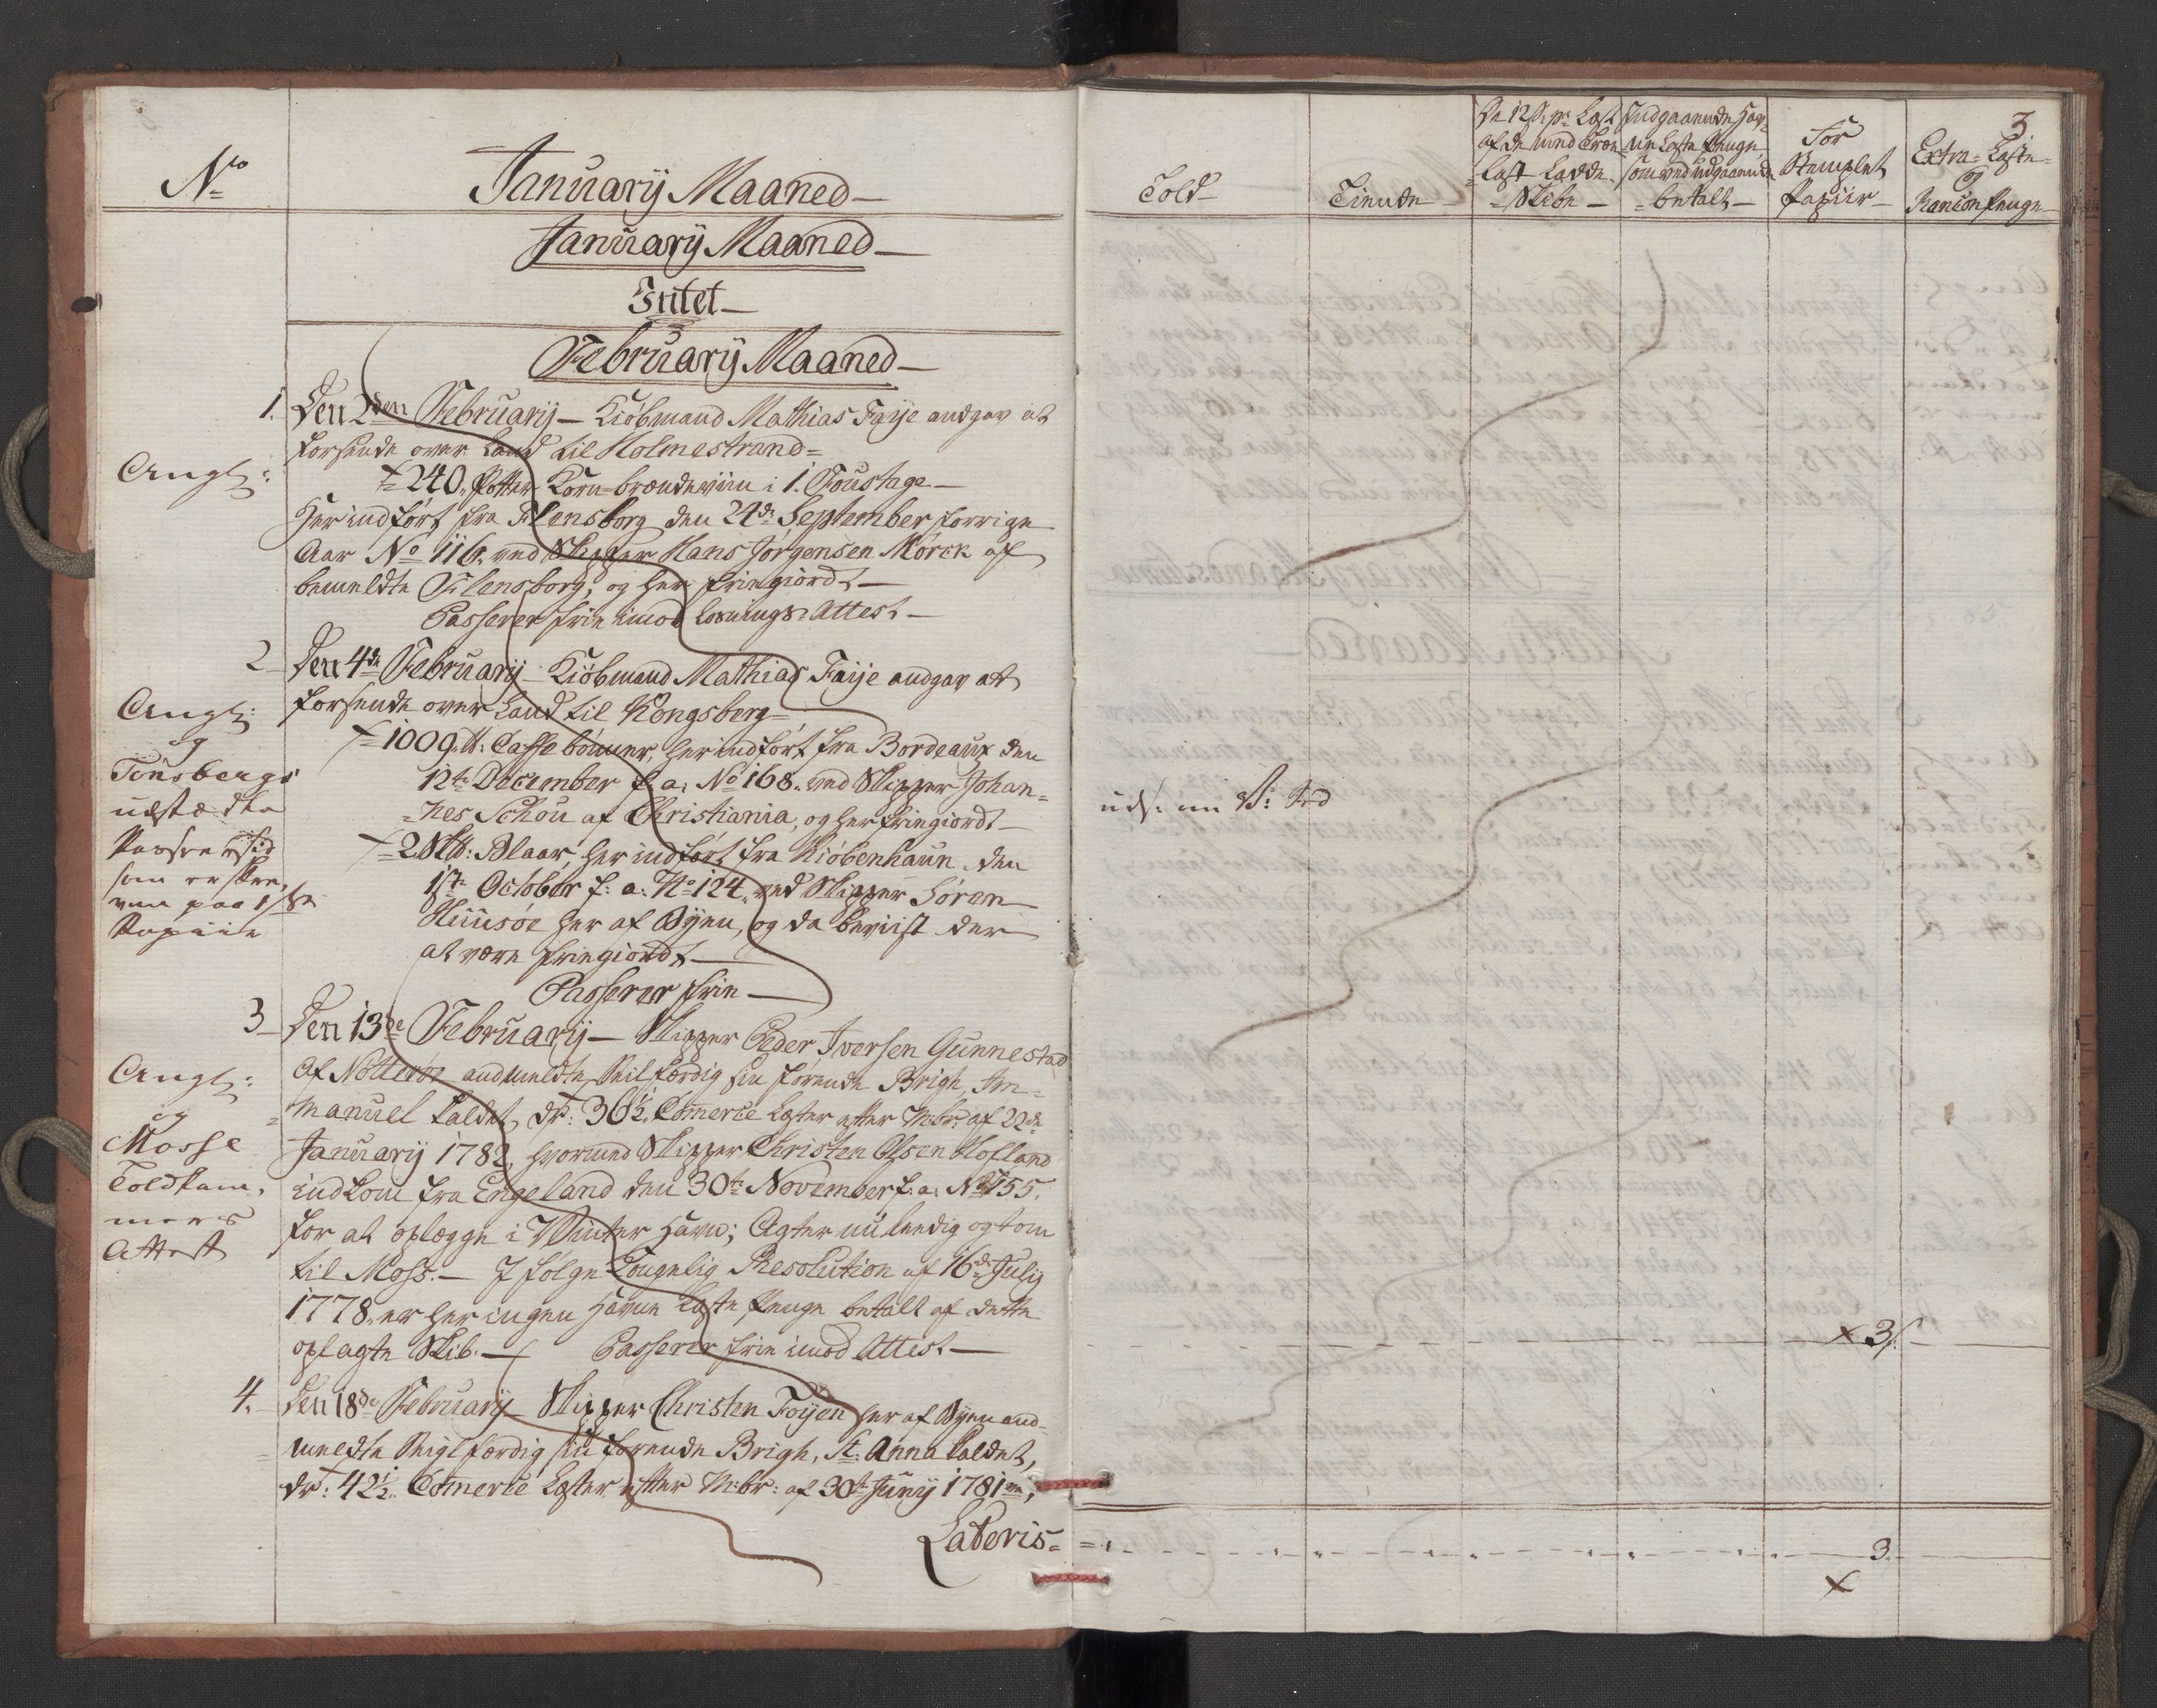 No
Januarij Maaned
Januarij Maaned
Intet
Februarij Maaned
1. Den 2den Februarij Kiøbmand Mathias Faÿe andgav at
forsende over Land til Holmestrand
Angl:
240 Potter Korn-brændeviin i 1. Foustage
Her indført fra Flensborg den 24de September forrige
Aar No 116. ved Skipper Hans Jørgensen Mørck af
bemeldte Flensborg, og her friegiordt
Passerer frie imod Losnings-Attest
2 Den 4de Februarij Kiøbmand Mathias Faÿe andgav at
forsende over Land til Kongsberg
Angl:
og
Tønsbergs
udstædte
Passersed
som er skre-
ven paa
Papiir
1009 ℔: Caffebønner, her indført fra Bordeaux den
12te December f: a: No 168. ved Skipper Johan-
nes Schou af Christiania, og her friegiordt
Blaar, her indført fra Kiøbenhaun den
1ste October f: a: No 124. ved Skipper Søren
Huusøe her af Byen, og da beviist der
at være friegiordt
Passerer frie
3 Den 13de Februarij Skipper Peder Iversen Gunnestad
Angl:
og
Mosse
Toldkam-
mers
Attest
af Nøtterøe andmeldte Seilfærdig sin førende Brigh Im-
manuel kaldet, dr: 36½ Commerce Læster efter M:br: af 22de
Januarij 1782, hvormed Skipper Christen Olsen Hofland
indkom fra Engeland den 30te November f: a: No 155.
for at oplægge i Winter Havn; Agter nu leedig og tom
til Moss. I følge Kongelig Resolution af 16de Julij
1778. er her ingen Havne Læste Penge betalt af dette
oplagte Skib. Passerer frie imod Attest
4. Den 18de Februarij Skipper Christen Foÿen her af Byen and-
meldte Seigl færdig sin førende Brigh, St: Anna kaldet,
dr: 42½ Commerce Læster efter M:br: af 30te Junij 1781
Lateris
3
Told
Tiende
De 12 s. pr Læst
af de med Træe
Last Ladde
Skibe
Indgaaende Hav-
ne Læste Penge
som ved udgaaende
betalt
For
Stemplet
Papiir
Extra-Læste
og
Rançon Penge
x 3
3.
x